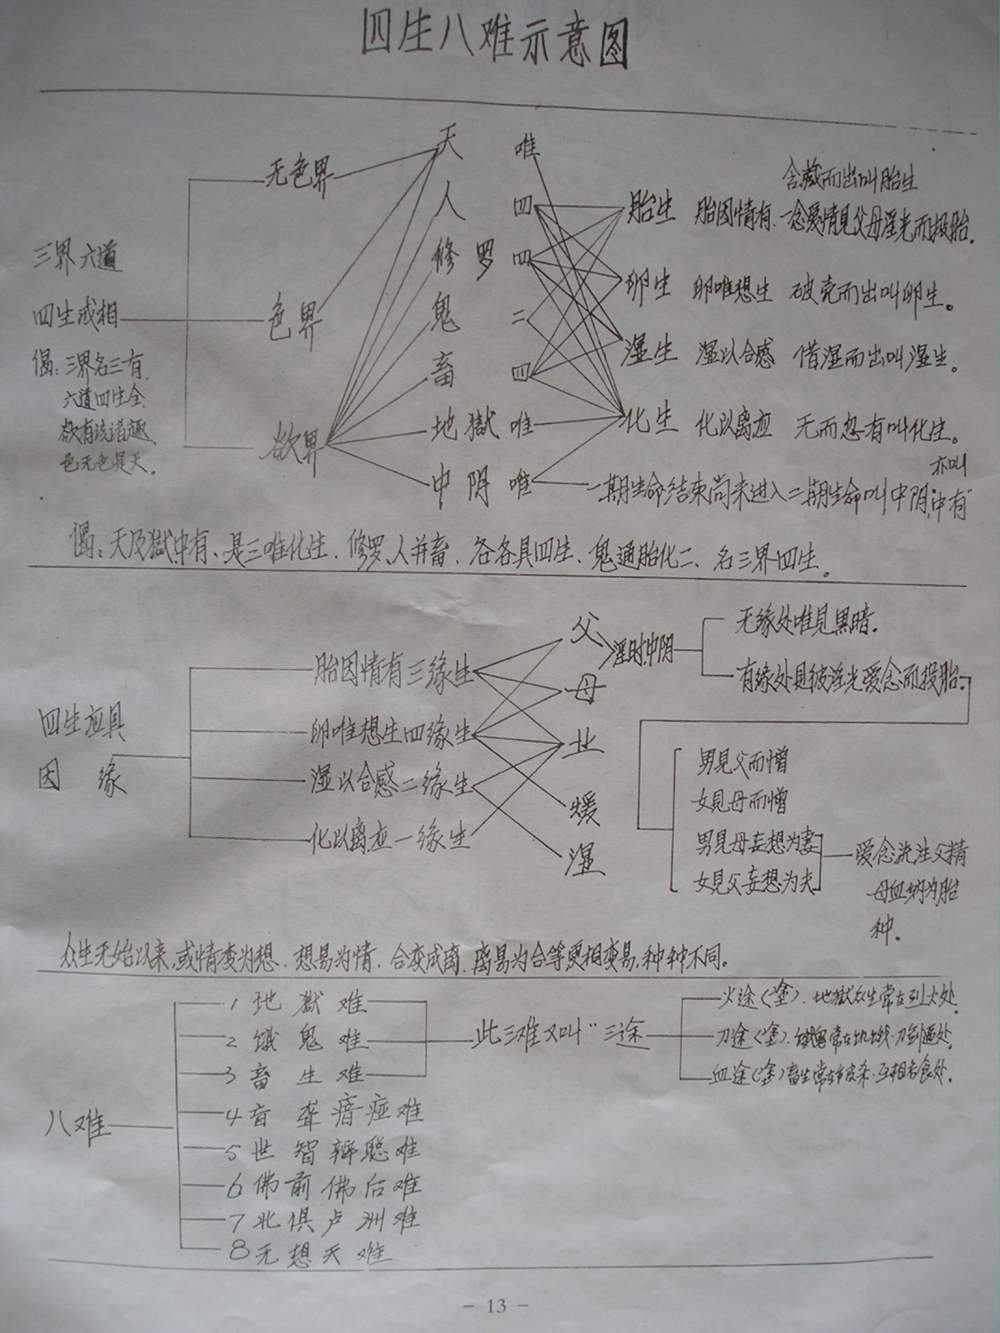 四生八难示意图
三界六道
四生成相
偈:三界名三有.
六道四生全.
欲有该诸趣.
色无色是天。
无色界
色界
欲界
天 唯
人 四
修罗 四
鬼 二
畜 四
地獄 唯
中阴 唯
含藏而出叫胎生
胎生 胎因情有.一念爱情見父母淫光而投胎.
卵生 卵唯想生 破壳而出叫卵生。
湿生 湿以合感 借湿而出叫湿生。
化生 化以离应 无而忽有叫化生。
亦叫
一期生命结束尚未进入二期生命叫中阴,"中有"
偈:天及獄中有、是三唯化生.修罗、人并畜.各各具四生、鬼通胎化二、名三界四生。
四生应具
因 缘
胎因情有三缘生
卵唯想生四缘生
湿以合感二缘生
化以离应一缘生
父
母
业
煖
湿
淫时中阴
无缘处唯見黑暗.
有缘处見彼淫光爱念而投胎.
男見父而憎
女見母而憎
男見母妄想为妻
女見父妄想为夫
爱念流注父精
母血纳为胎
种.
众生无始以来,或情变为想.想易为情.合变成离.离易为合等更相变易,种种不同。
八难
1 地獄难
2 饿鬼难
3 畜生难
4 盲聋瘖痖难
5 世智辨聪难
6 佛前佛后难
7 北俱卢洲难
8 无想天难
此三难又叫"三途
火途(塗).地獄众生常在烈火处.
刀途(塗).饿鬼常在饥饿.刀剑逼处.
血途(塗)畜生常在 杀.互相吞食处.
- 13 -